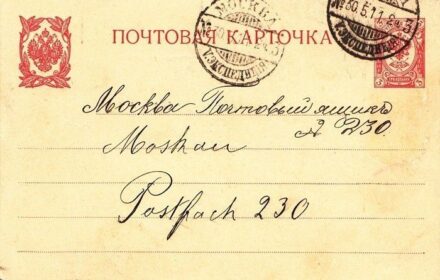 МОСКВА
№ 60.5.11
ЭКСПЕДИЦІЯ
ПОЧТОВАЯ КАРТОЧКА
Москва Почтовый ящикъ
№ 230.
Moskau
Postfach 230